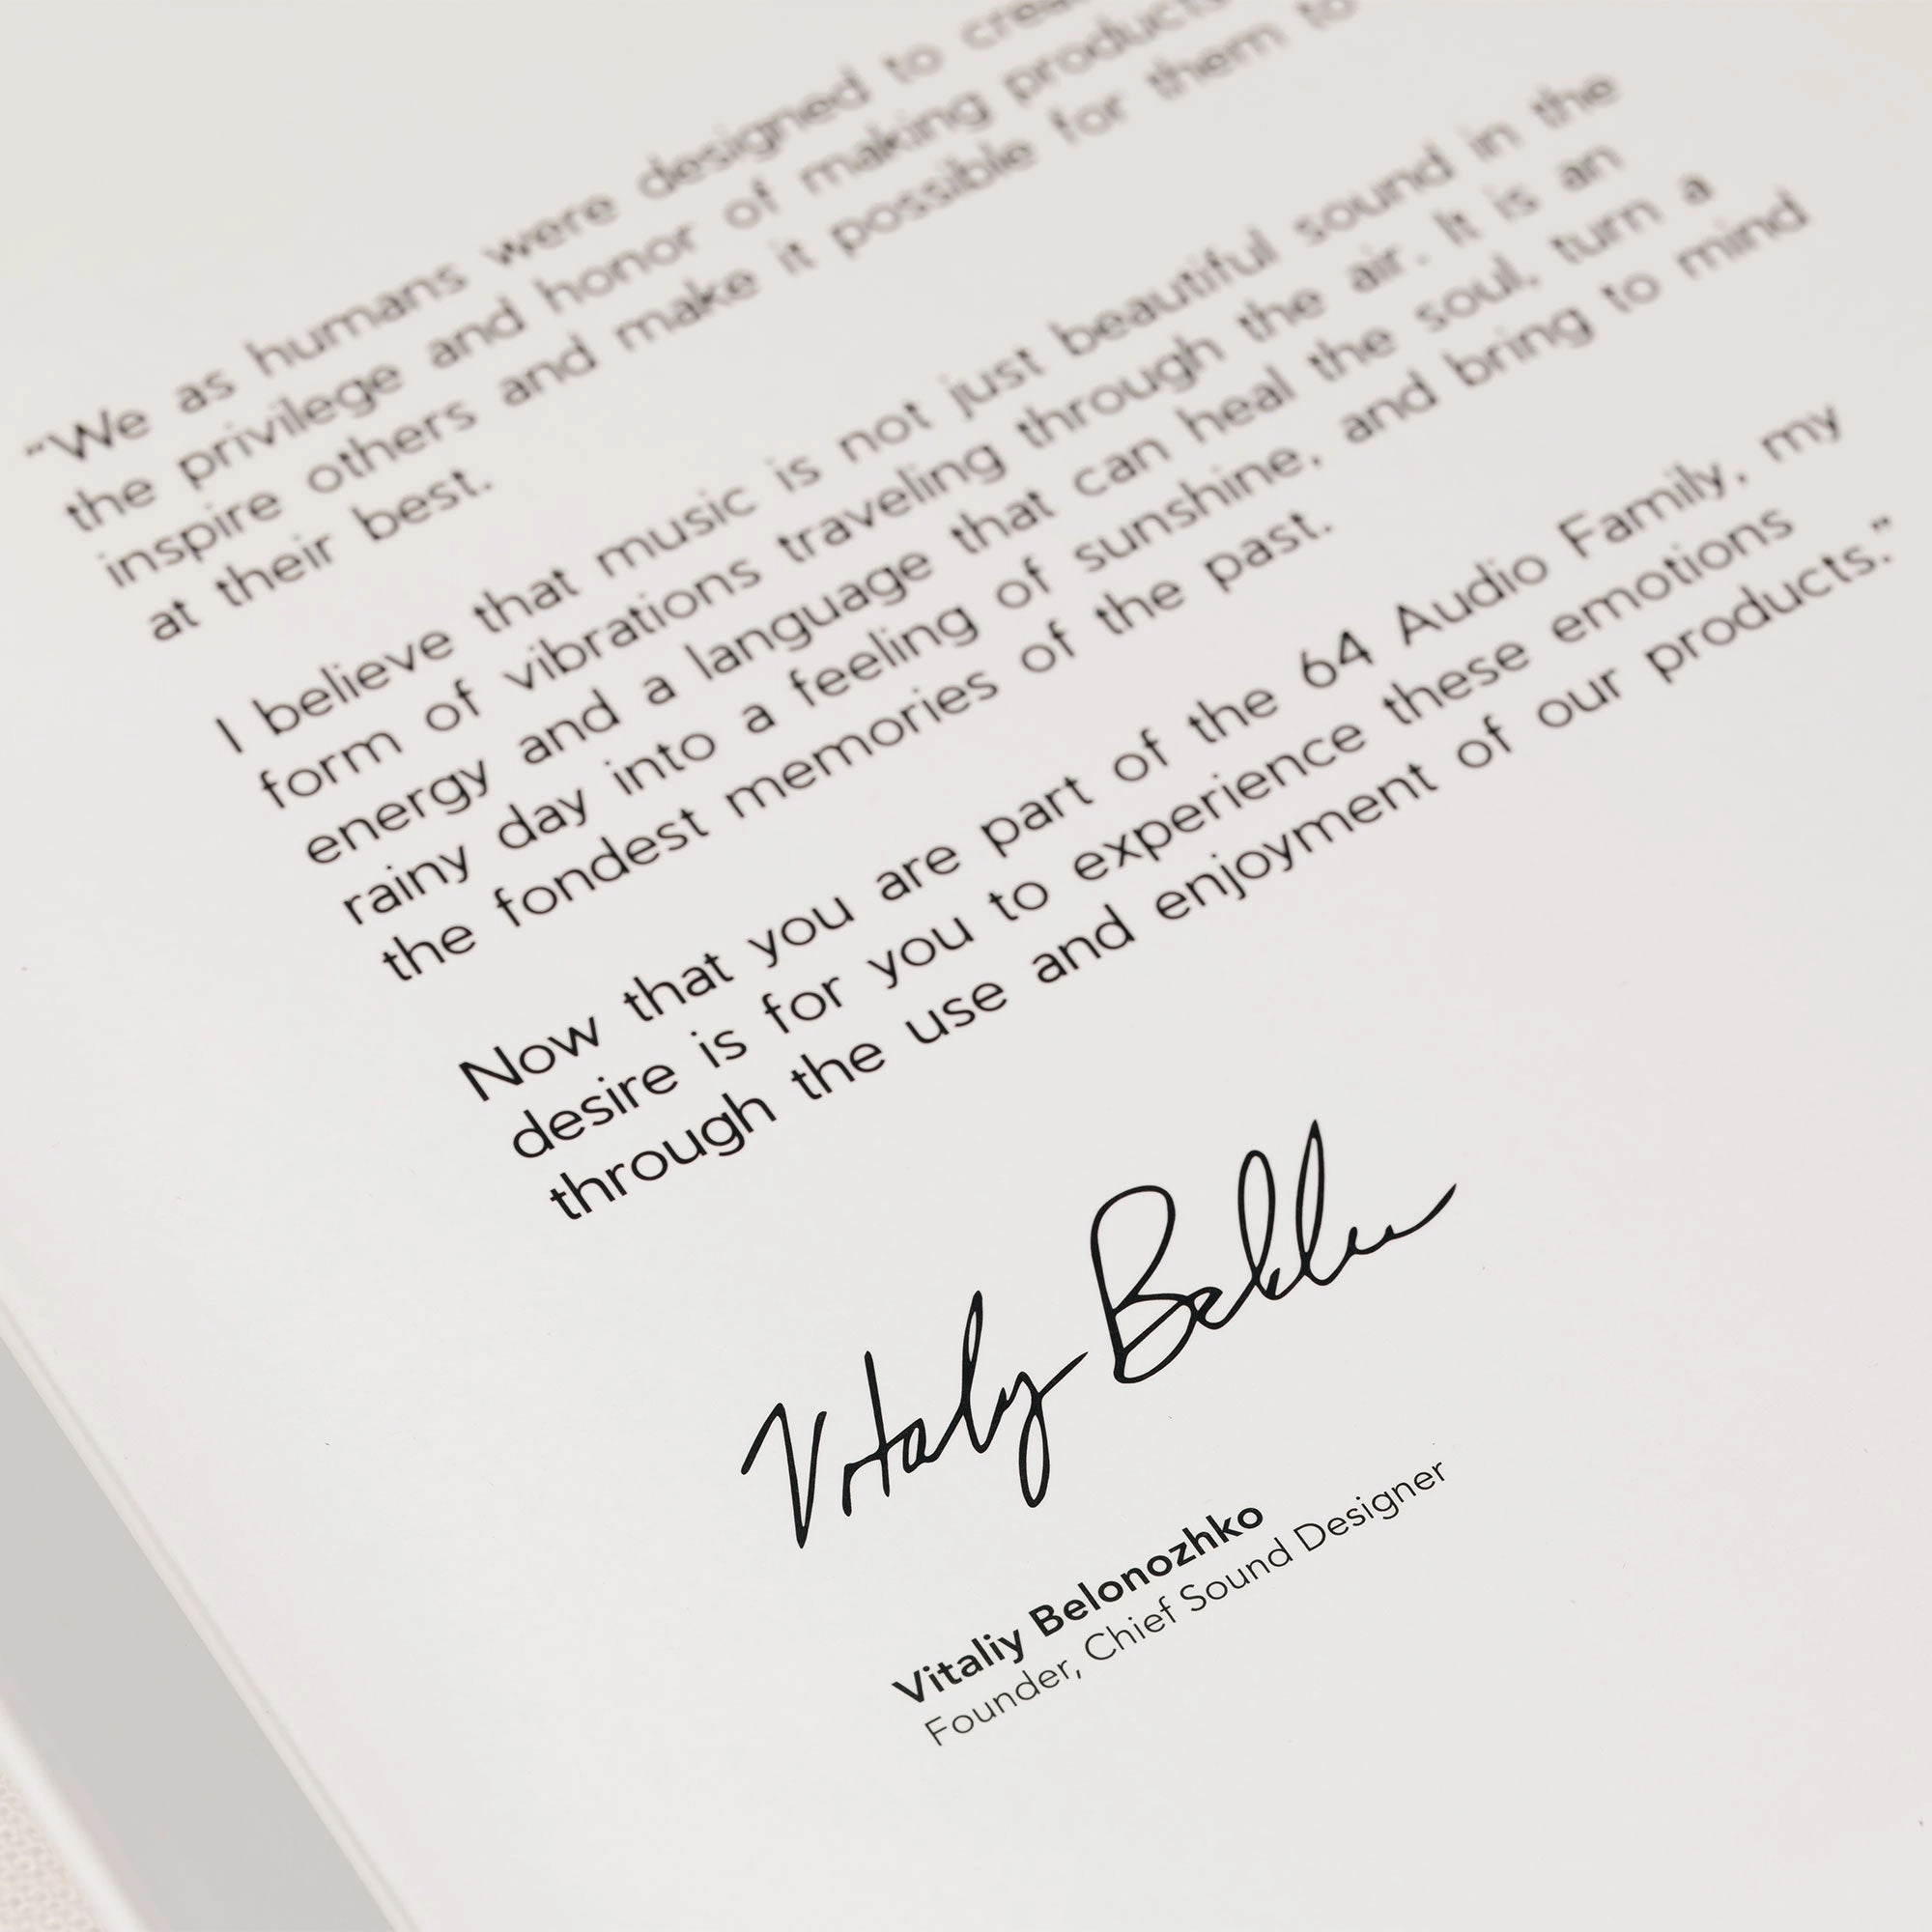 "We as humans were designed to
the privilege and honor of making products
inspire others and make it possible for them to
at their best.
I believe that music is not just beautiful sound in the
form of vibrations traveling through the air. It is an
energy and a language that can heal the soul, turn a
rainy day into a feeling of sunshine, and bring to mind
the fondest memories of the past.
Now that you are part of the 64 Audio Family, my
desire is for you to experience these emotions
through the use and enjoyment of our products."
Vitaliy Belonozhko
Founder, Chief Sound Designer